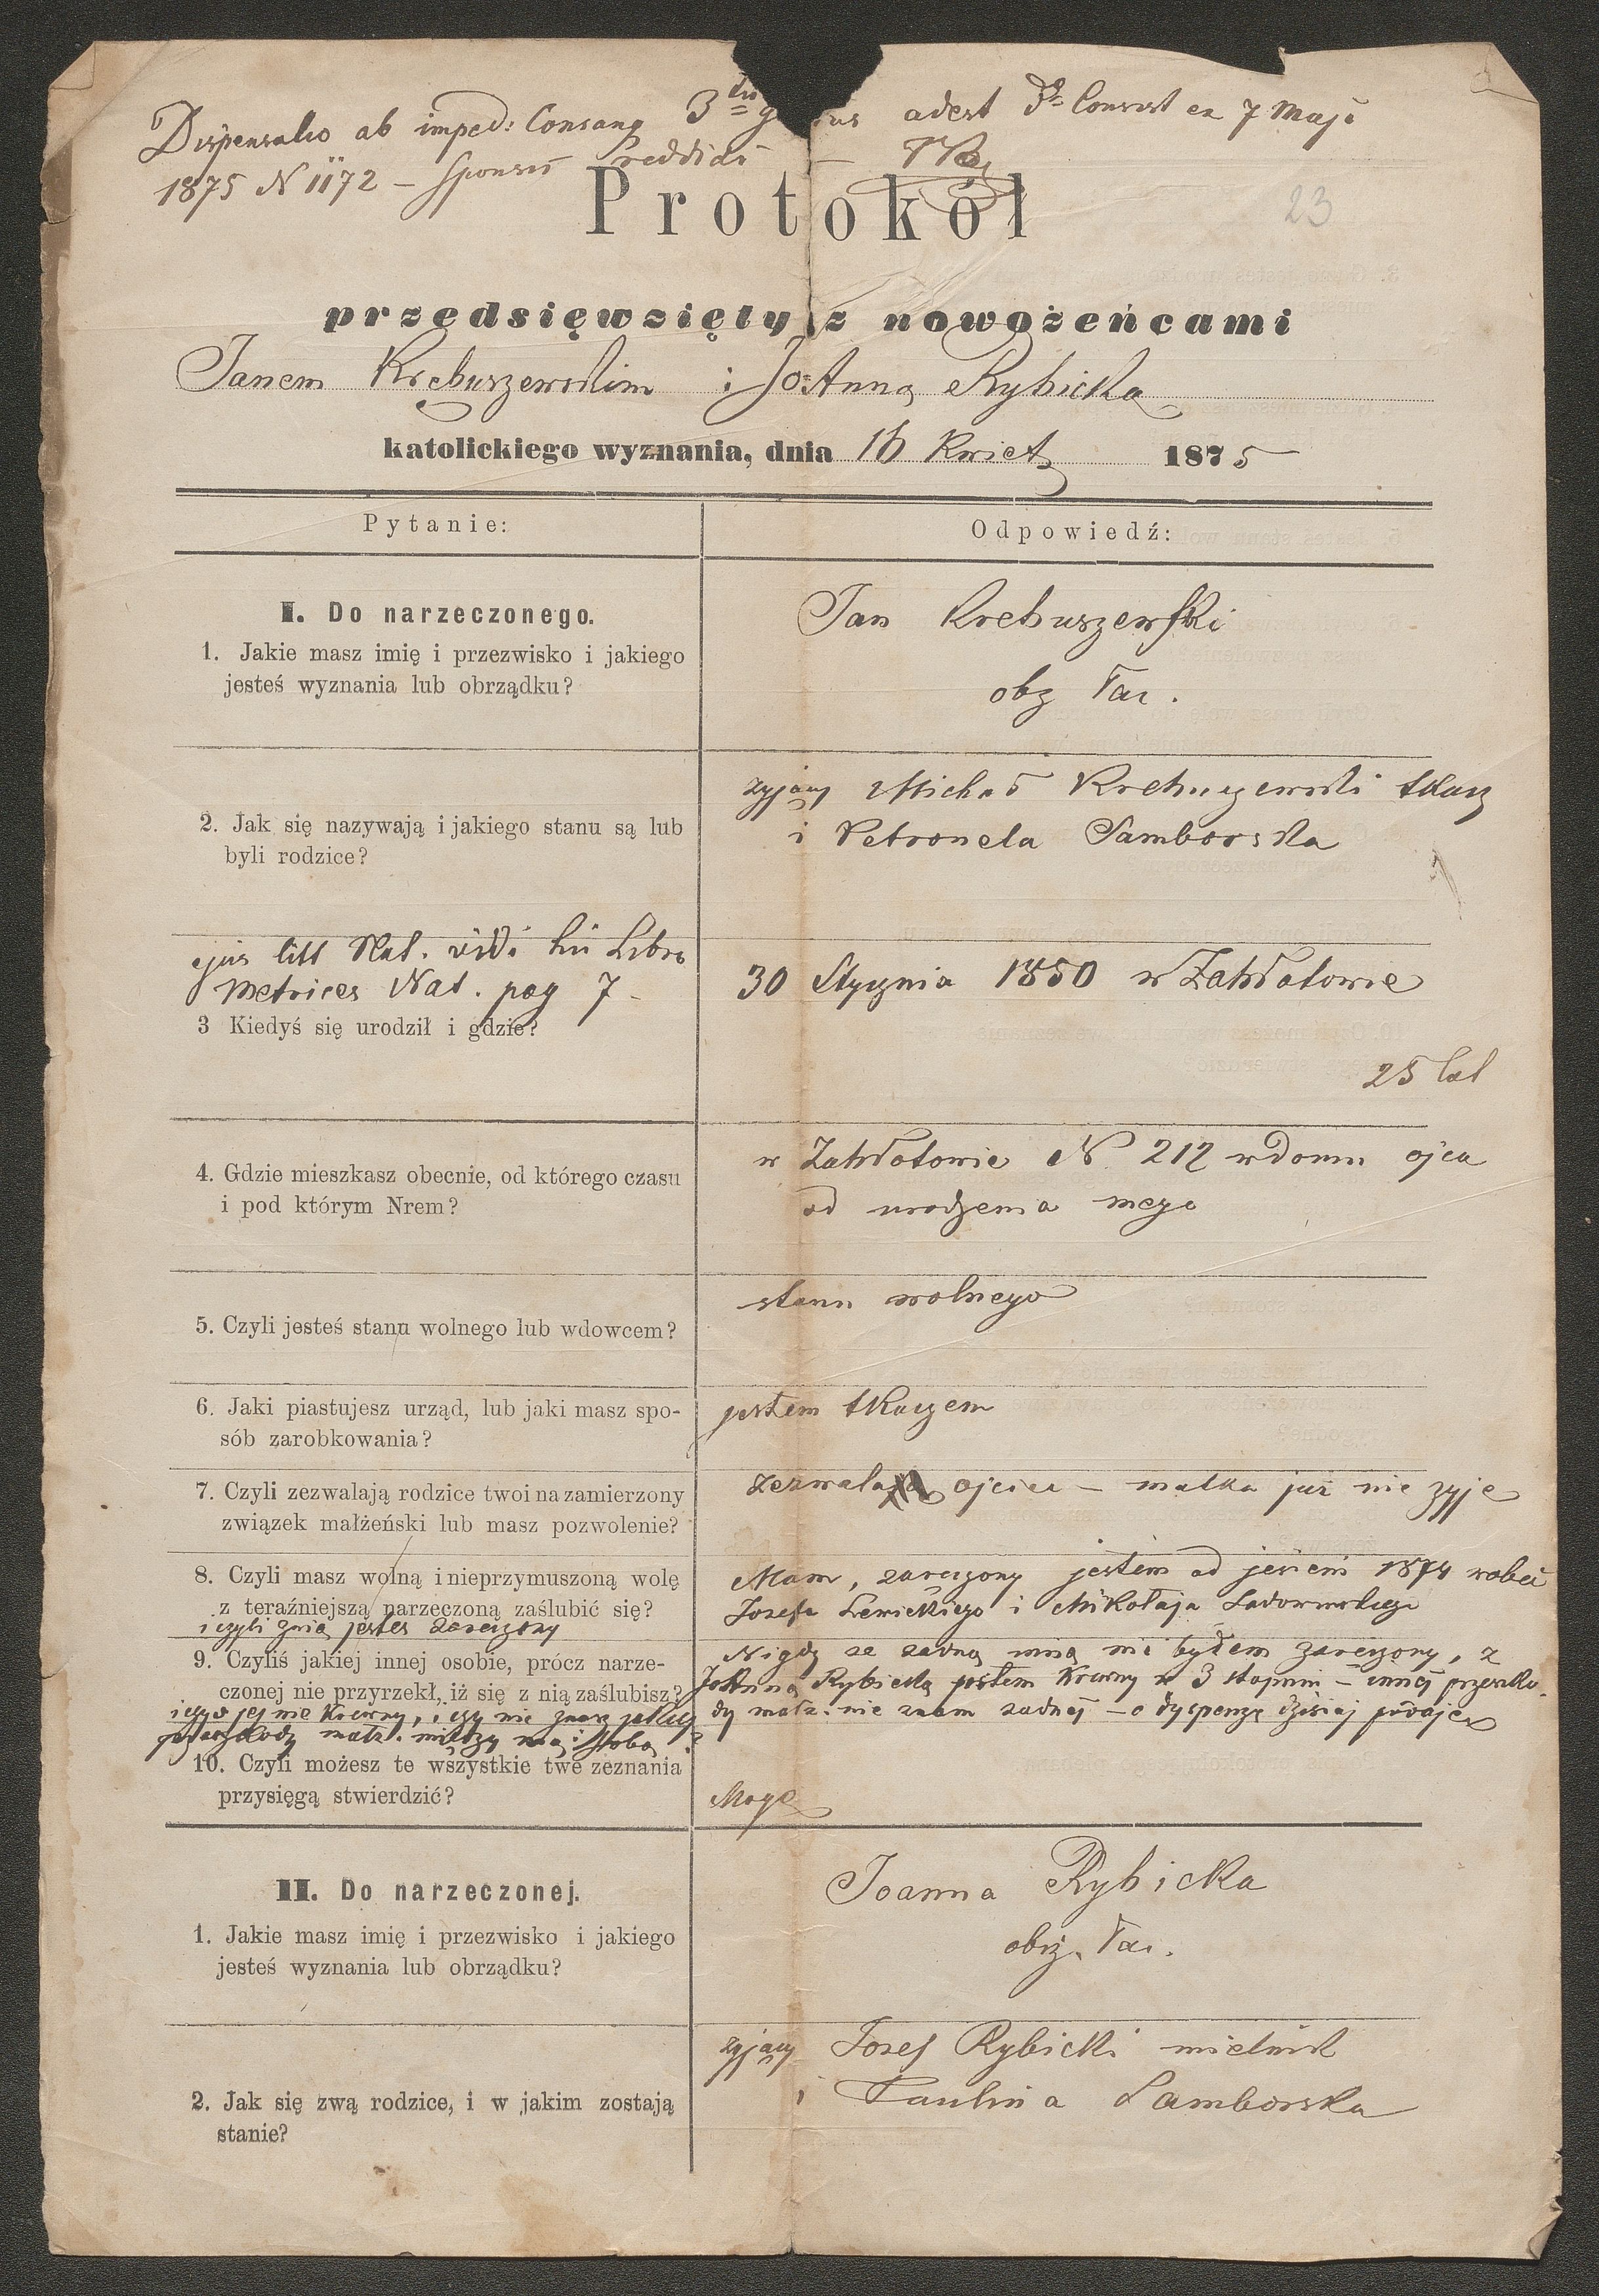 Dispensatio ab imped: Consang 3tio g adest Dto Consist ex 7 Maji
1875 N 1172 – Sponsis reddidi –
Protokół
23
przedsięwzięty z nowożeńcami
Janem Krebuszewskim i JoAnną Rybicką
katolickiego wyznania, dnia 16 Kwiet 1875
Pytanie:
Odpowiedź:
I. Do narzeczonego.
1. Jakie masz imię i przezwisko i jakiego
jesteś wyznania lub obrządku?
Jan Krebuszewski
obz łac.
2. Jak się nazywają i jakiego stanu są lub
byli rodzice?
żyjący Michał Krebuszewski tkacz
i Petronela Samborska
ejus litt Nat. vidi hic Libro
Metrices Nat. pag 7 –
3 Kiedyś się urodził i gdzie?
30 Stycznia 1850 w Zabłotowie
25 lat
4. Gdzie mieszkasz obecnie, od którego czasu
i pod którym Nrem?
w Zabłotowie N 212 w domu ojca
od urodzenia mego
5. Czyli jesteś stanu wolnego lub wdowcem?
stanu wolnego
6. Jaki piastujesz urząd, lub jaki masz spo-
sób zarobkowania?
jestem tkaczem
7. Czyli zezwalają rodzice twoi na zamierzony
związek małżeński lub masz pozwolenie?
zezwala ojciec – matka już nie żyje
8. Czyli masz wolną i nieprzymuszoną wolę
z teraźniejszą narzeczoną zaślubić się?
i czyli z nią jesteś zaręczony
Mam, zaręczony jestem od jesieni 1874 wobec
Josefa Lewickiego i Mikołaja Sadowskiego
9. Czyliś jakiej innej osobie, prócz narze-
czonej nie przyrzekł, iż się z nią zaślubisz?
i czyś jej nie krewny, i czy nie znasz jakiej
przeszkody małż. między nią i tobą?
Nigdy ze żadną inną nie byłem zaręczony, z
JoAnną Rybicką jestem krewny w 3 stopniu – innej przeszko-
dy małż. nie znam żadnej – o dyspenzę dzisiaj podaję
10. Czyli możesz te wszystkie twe zeznania
przysięgą stwierdzić?
Mogę
II. Do narzeczonej.
1. Jakie masz imię i przezwisko i jakiego
jesteś wyznania lub obrządku?
Joanna Rybicka
obrz. łac.
2. Jak się zwą rodzice, i w jakim zostają
stanie?
żyjący Josef Rybicki mielnik
i Paulina Samborska